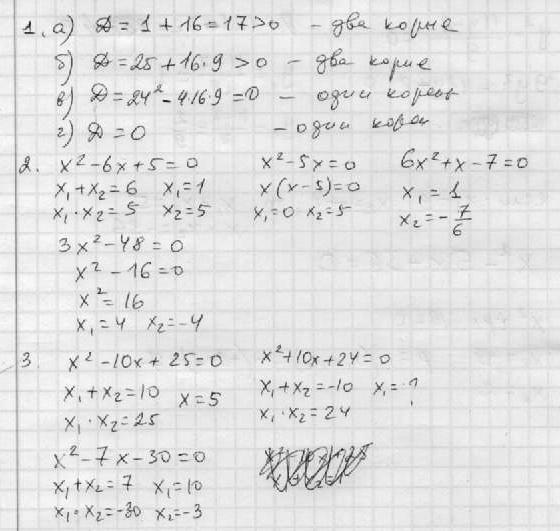 1. а) D = 1 + 16 = 17 > 0 – два корня
б) D = 25 + 16·9 > 0 – два корня
в) D = 24² – 4·16·9 = 0 – один корень
г) D = 0 – один корен
2. x² – 6x + 5 = 0
x₁ + x₂ = 6 x₁ = 1
x₁ · x₂ = 5 x₂ = 5
x² – 5x = 0
x(x – 5) = 0
x₁ = 0 x₂ = 5
6x² + x – 7 = 0
x₁ = 1
x₂ = – 7/6
3x² – 48 = 0
x² – 16 = 0
x² = 16
x₁ = 4 x₂ = –4
3. x² – 10x + 25 = 0
x₁ + x₂ = 10 x = 5
x₁ · x₂ = 25
x² + 10x + 24 = 0
x₁ + x₂ = –10 x₁ =
x₁ · x₂ = 24
x² – 7x – 30 = 0
x₁ + x₂ = 7 x₁ = 10
x₁ · x₂ = –30 x₂ = –3